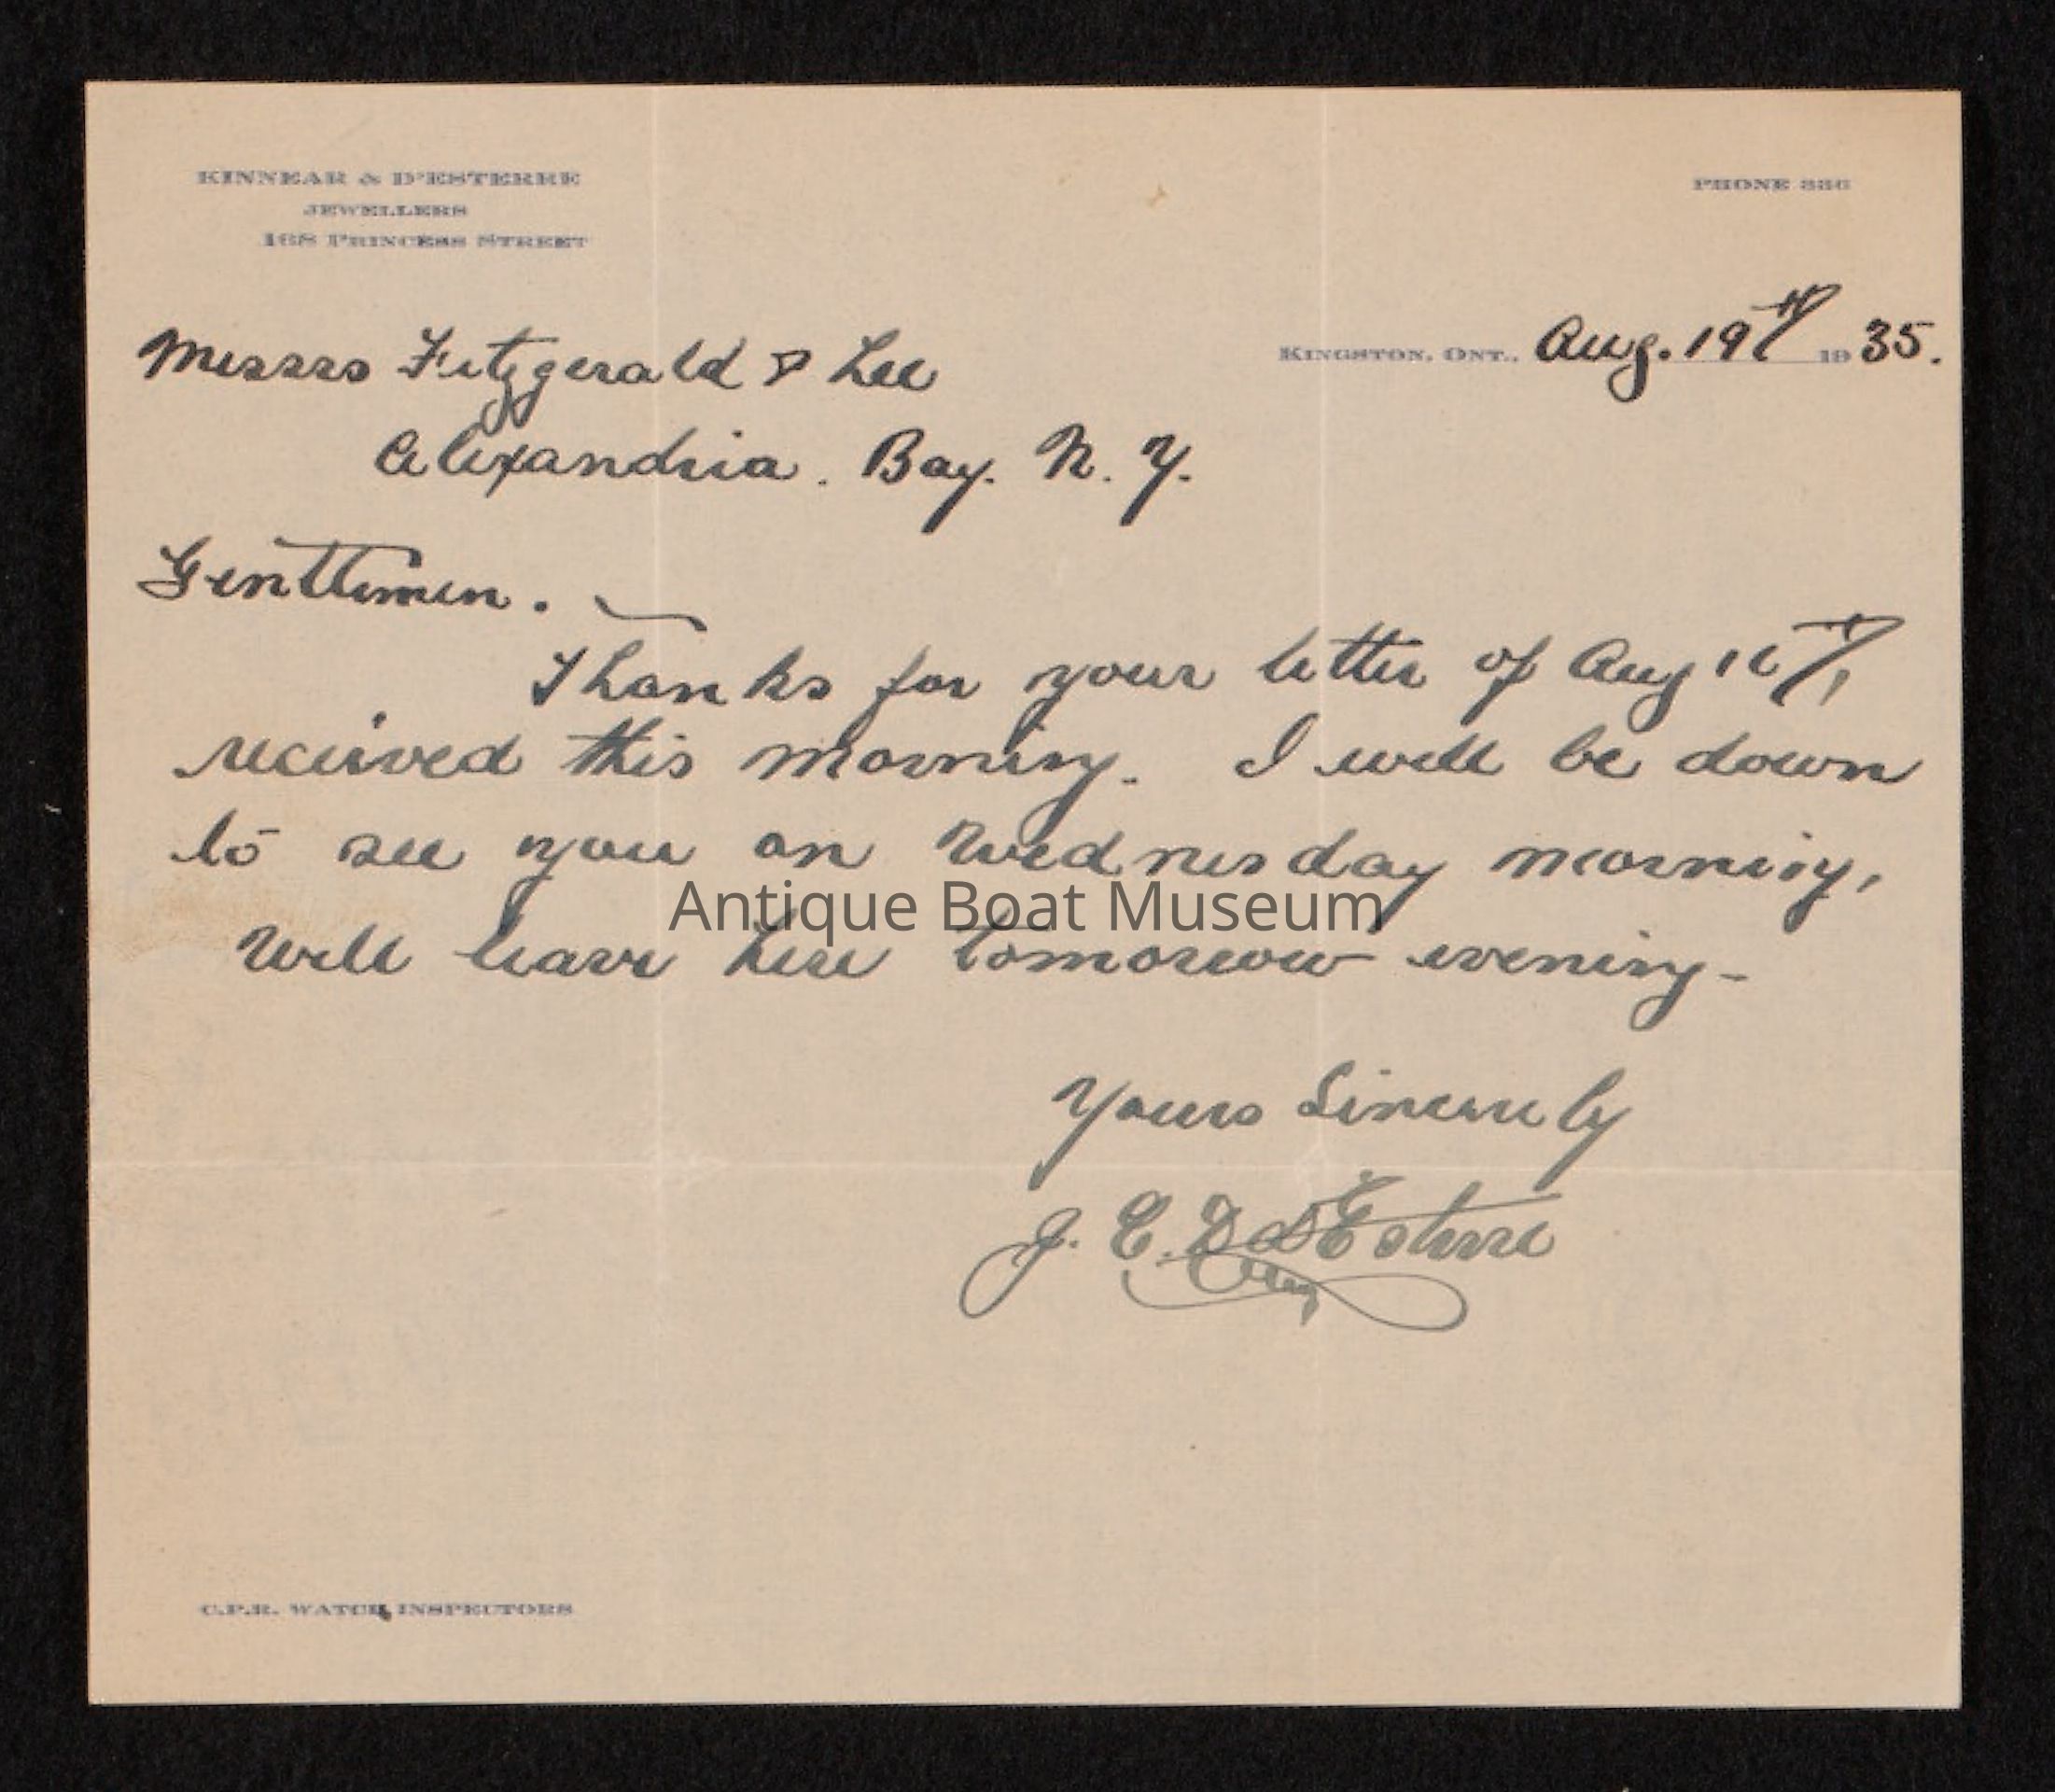 KINNEAR & D'ESTERRE
JEWELLERS
168 PRINCESS STREET
PHONE 336
KINGSTON, ONT., Aug. 19th 1935.
Messrs Fitzgerald & Lee
Alexandria. Bay. N. Y.
Gentlemen.
Thanks for your letter of Aug 16th,
received this morning. I will be down
to see you on Wednesday morning,
Will leave here tomorrow evening-
Antique Boat Museum
Yours Sincerely
J. E. D d'Esterre
C.P.R. WATCH INSPECTORS